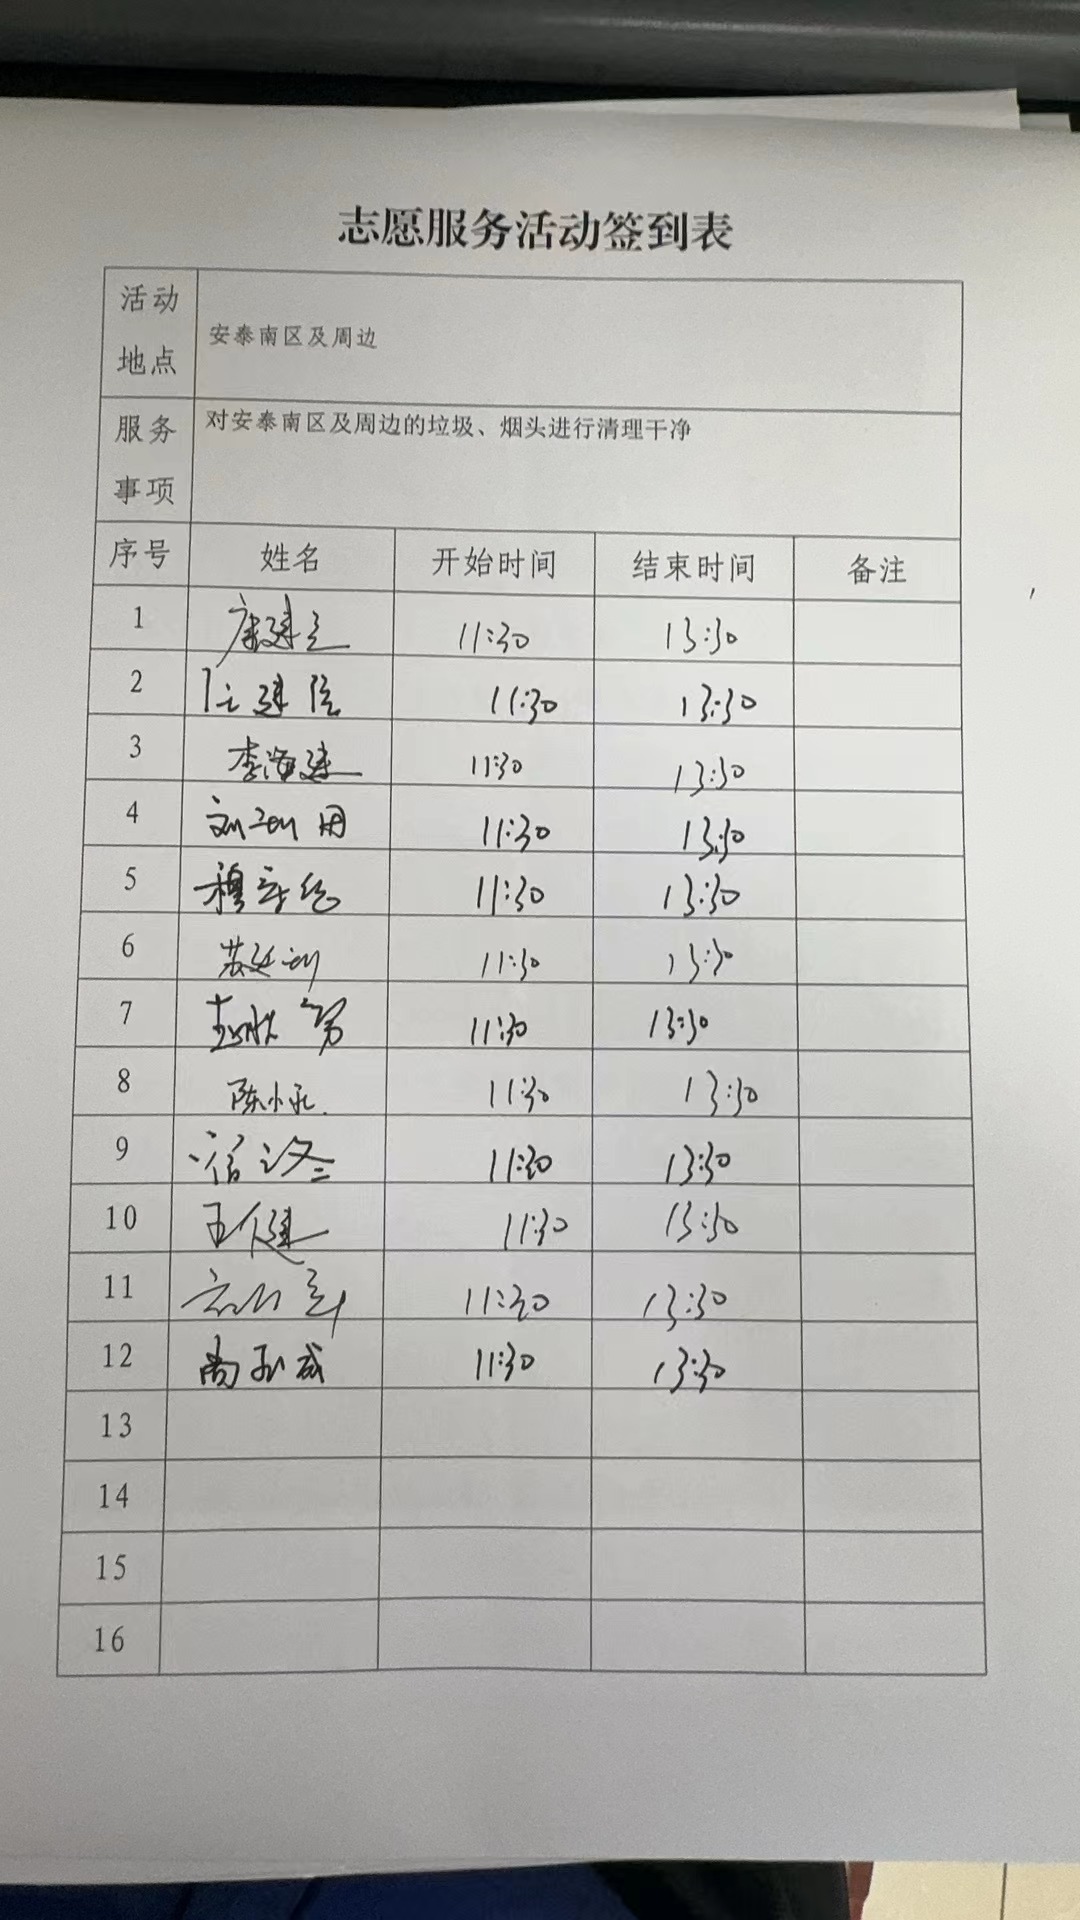 志愿服务活动签到表
活动地点 安泰南区及周边
服务事项 对安泰南区及周边的垃圾、烟头进行清理干净
序号 姓名 开始时间 结束时间 备注
1 康建立 11:30 13:30
2 建 11:30 13:30
3 李海建 11:30 13:30
4 刘 用 11:30 13:30
5 穆 11:30 13:30
6 苏 11:30 13:30
7 11:30 13:30
8 陈小永 11:30 13:30
9 宿 11:30 13:30
10 王健 11:30 13:30
11 11:30 13:30
12 尚玉成 11:30 13:30
13
14
15
16